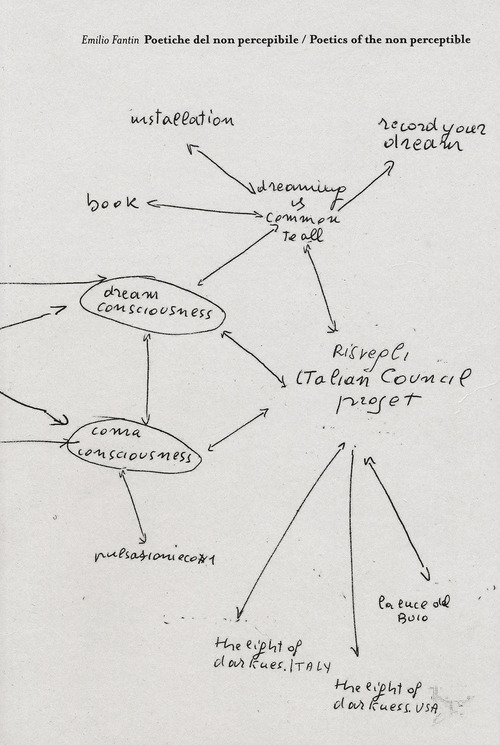 Emilio Fantin Poetiche del non percepibile / Poetics of the non perceptible
installation
record your
dream
dreaming
is
common
to all
book
dream
consciousness
Risvegli
ITalian Council
proget
coma
consciousness
la luce del
Buio
the light of
darknes. ITALY
the light of
darkness. USA